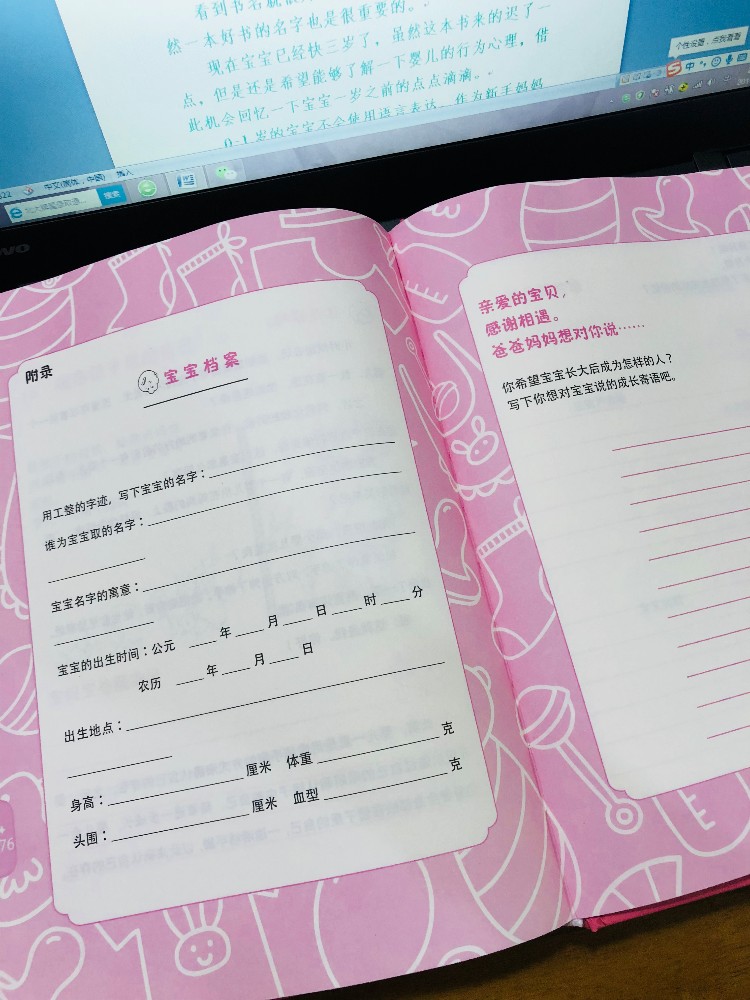 看到书名就
然一本好书的名字也是很重要的。
现在宝宝已经快三岁了，虽然这本书来的迟了一
点，但是还是希望能够了解一下婴儿的行为心理，借
此机会回忆一下宝宝一岁之前的点点滴滴。
0-1岁的宝宝不会使用语言表达，作为新手妈妈
个性设置，点我看看
中
中文(简体，中国)
插入
搜索
附录
宝宝档案
用工整的字迹，写下宝宝的名字：
谁为宝宝取的名字：
宝宝名字的寓意：
宝宝的出生时间：公元 年 月 日 时 分
农历 年 月 日
出生地点：
身高： 厘米 体重 克
头围： 厘米 血型 克
76
亲爱的宝贝，
感谢相遇。
爸爸妈妈想对你说……
你希望宝宝长大后成为怎样的人？
写下你想对宝宝说的成长寄语吧。